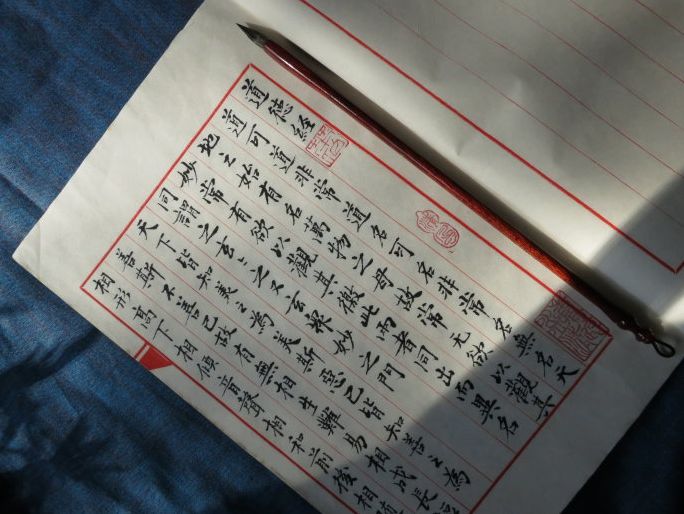 道德經
道可道非常道名可名非常名無名天
地之始有名萬物之母故常无欲以觀其
妙常有欲以觀其徼此兩者同出而異名
同謂之玄〻之又玄眾妙之門
天下皆知美之為美斯惡已皆知善之為
善斯不善已故有無相生難易相成長
相形高下相傾音聲相和前後相隨